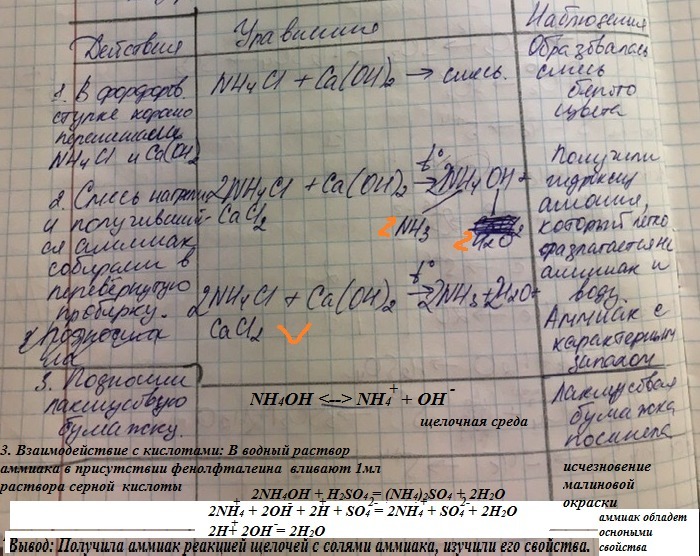 Действия Уравнение Наблюдения
1. В фарфоров.
ступке хорошо
перемешали
NH4Cl и Ca(OH)2
NH4Cl + Ca(OH)2 → смесь.
Образовалась
смесь
белого
цвета
2. Смесь нагрели
и получивший-
ся аммиак
собирали в
перевернутую
пробирку.
2NH4Cl + Ca(OH)2 t°→ 2NH4OH +
CaCl2
2NH3 2H2O
2NH4Cl + Ca(OH)2 t°→ 2NH3 + 2H2O +
CaCl2
Получили
гидроксид
аммония,
который легко
разлагается на
аммиак и
воду.
Аммиак с
характерным
запахом
3. Подносили
лакмусовую
бумажку.
NH4OH <--> NH4+ + OH-
щелочная среда
Лакмусовая
бумажка
посинела
3. Взаимодействие с кислотами: В водный раствор
аммиака в присутствии фенолфталеина вливают 1мл
раствора серной кислоты
2NH4OH + H2SO4 = (NH4)2SO4 + 2H2O
2NH4+ + 2OH- + 2H+ + SO42- = 2NH4+ + SO42- + 2H2O
2H+ 2OH- = 2H2O
исчезновение
малиновой
окраски
аммиак обладет
осноными
свойства
Вывод: Получила аммиак реакцией щелочей с солями аммиака, изучили его свойства.